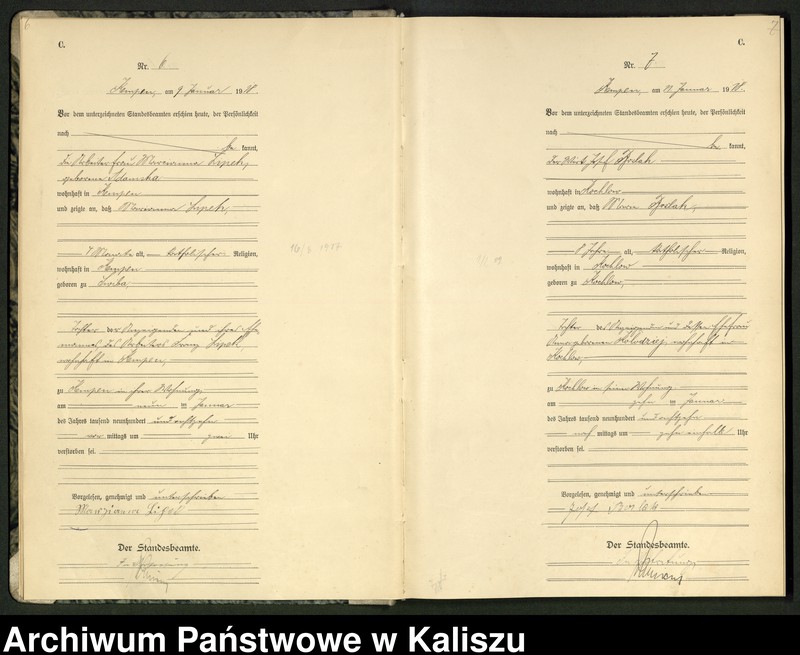 6
C.
Nr. 6
Kempen, am 9 Januar 1918.
Vor dem unterzeichneten Standesbeamten erschien heute, der Persönlichkeit
nach
be kannt,
Die Arbeiterfrau
geborene Adamska
wohnhaft in Kempen
und zeigte an, daß
7 Monate alt, katholischer Religion,
wohnhaft in Kempen
geboren zu
Tochter der Anzeigenden und ihres Ehe
mannes, des Arbeiters Franz
wohnhaft in Kempen,
zu Kempen in ihrer Wohnung,
am neun ten Januar
des Jahres tausend neunhundert und achtzehn
vor mittags um zwei Uhr
verstorben sei.
Vorgelesen, genehmigt und unterschrieben
Der Standesbeamte.
In Vertretung
7
C.
Nr. 7
Kempen, am 11 Januar 1918.
Vor dem unterzeichneten Standesbeamten erschien heute, der Persönlichkeit
nach
be kannt,
Der Wirt Josef
wohnhaft in Kochlow
und zeigte an, daß
8 Jahre alt, katholischer Religion,
wohnhaft in Kochlow
geboren zu Kochlow,
Tochter des Anzeigenden und dessen Ehefrau
geborenen wohnhaft in
Kochlow,
zu Kochlow in seiner Wohnung
am zehn ten Januar
des Jahres tausend neunhundert und achtzehn
nach mittags um zehn einhalb Uhr
verstorben sei.
Vorgelesen, genehmigt und unterschrieben
Josef
Der Standesbeamte.
In Vertretung
Archiwum Państwowe w Kaliszu